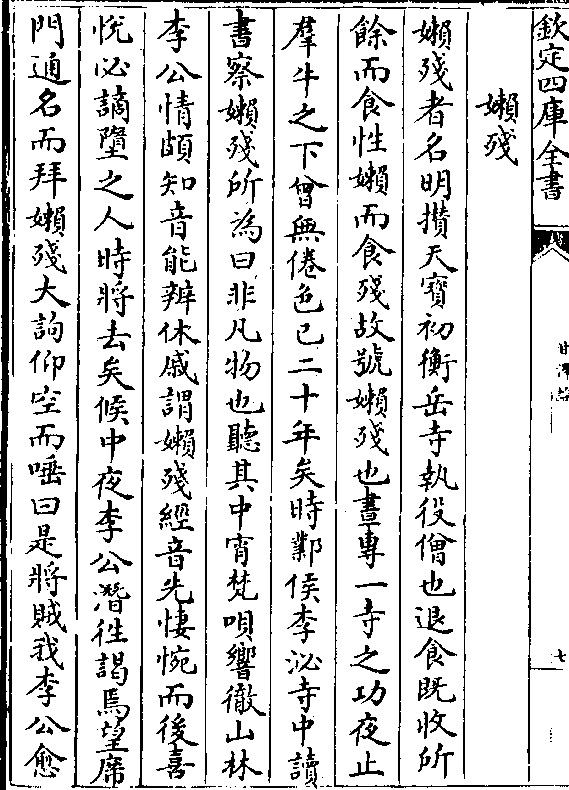 欽定四庫全書
嬾殘
嬾殘者名明攅天寶初衡岳寺執役僧也退食既收所
餘而食性嬾而食殘故號嬾殘也晝專一寺之功夜止
羣牛之下曾無倦色已二十年矣時鄴侯李泌寺中讀
書察嬾殘所為曰非凡物也聽其中宵梵唄響徹山林
李公情頗知音能辨休戚謂嬾殘經音先悽惋而後喜
悅必謫墮之人時將去矣候中夜李公潛徃謁焉望席
門通名而拜嬾殘大詢仰空而唾曰是將賊我李公愈